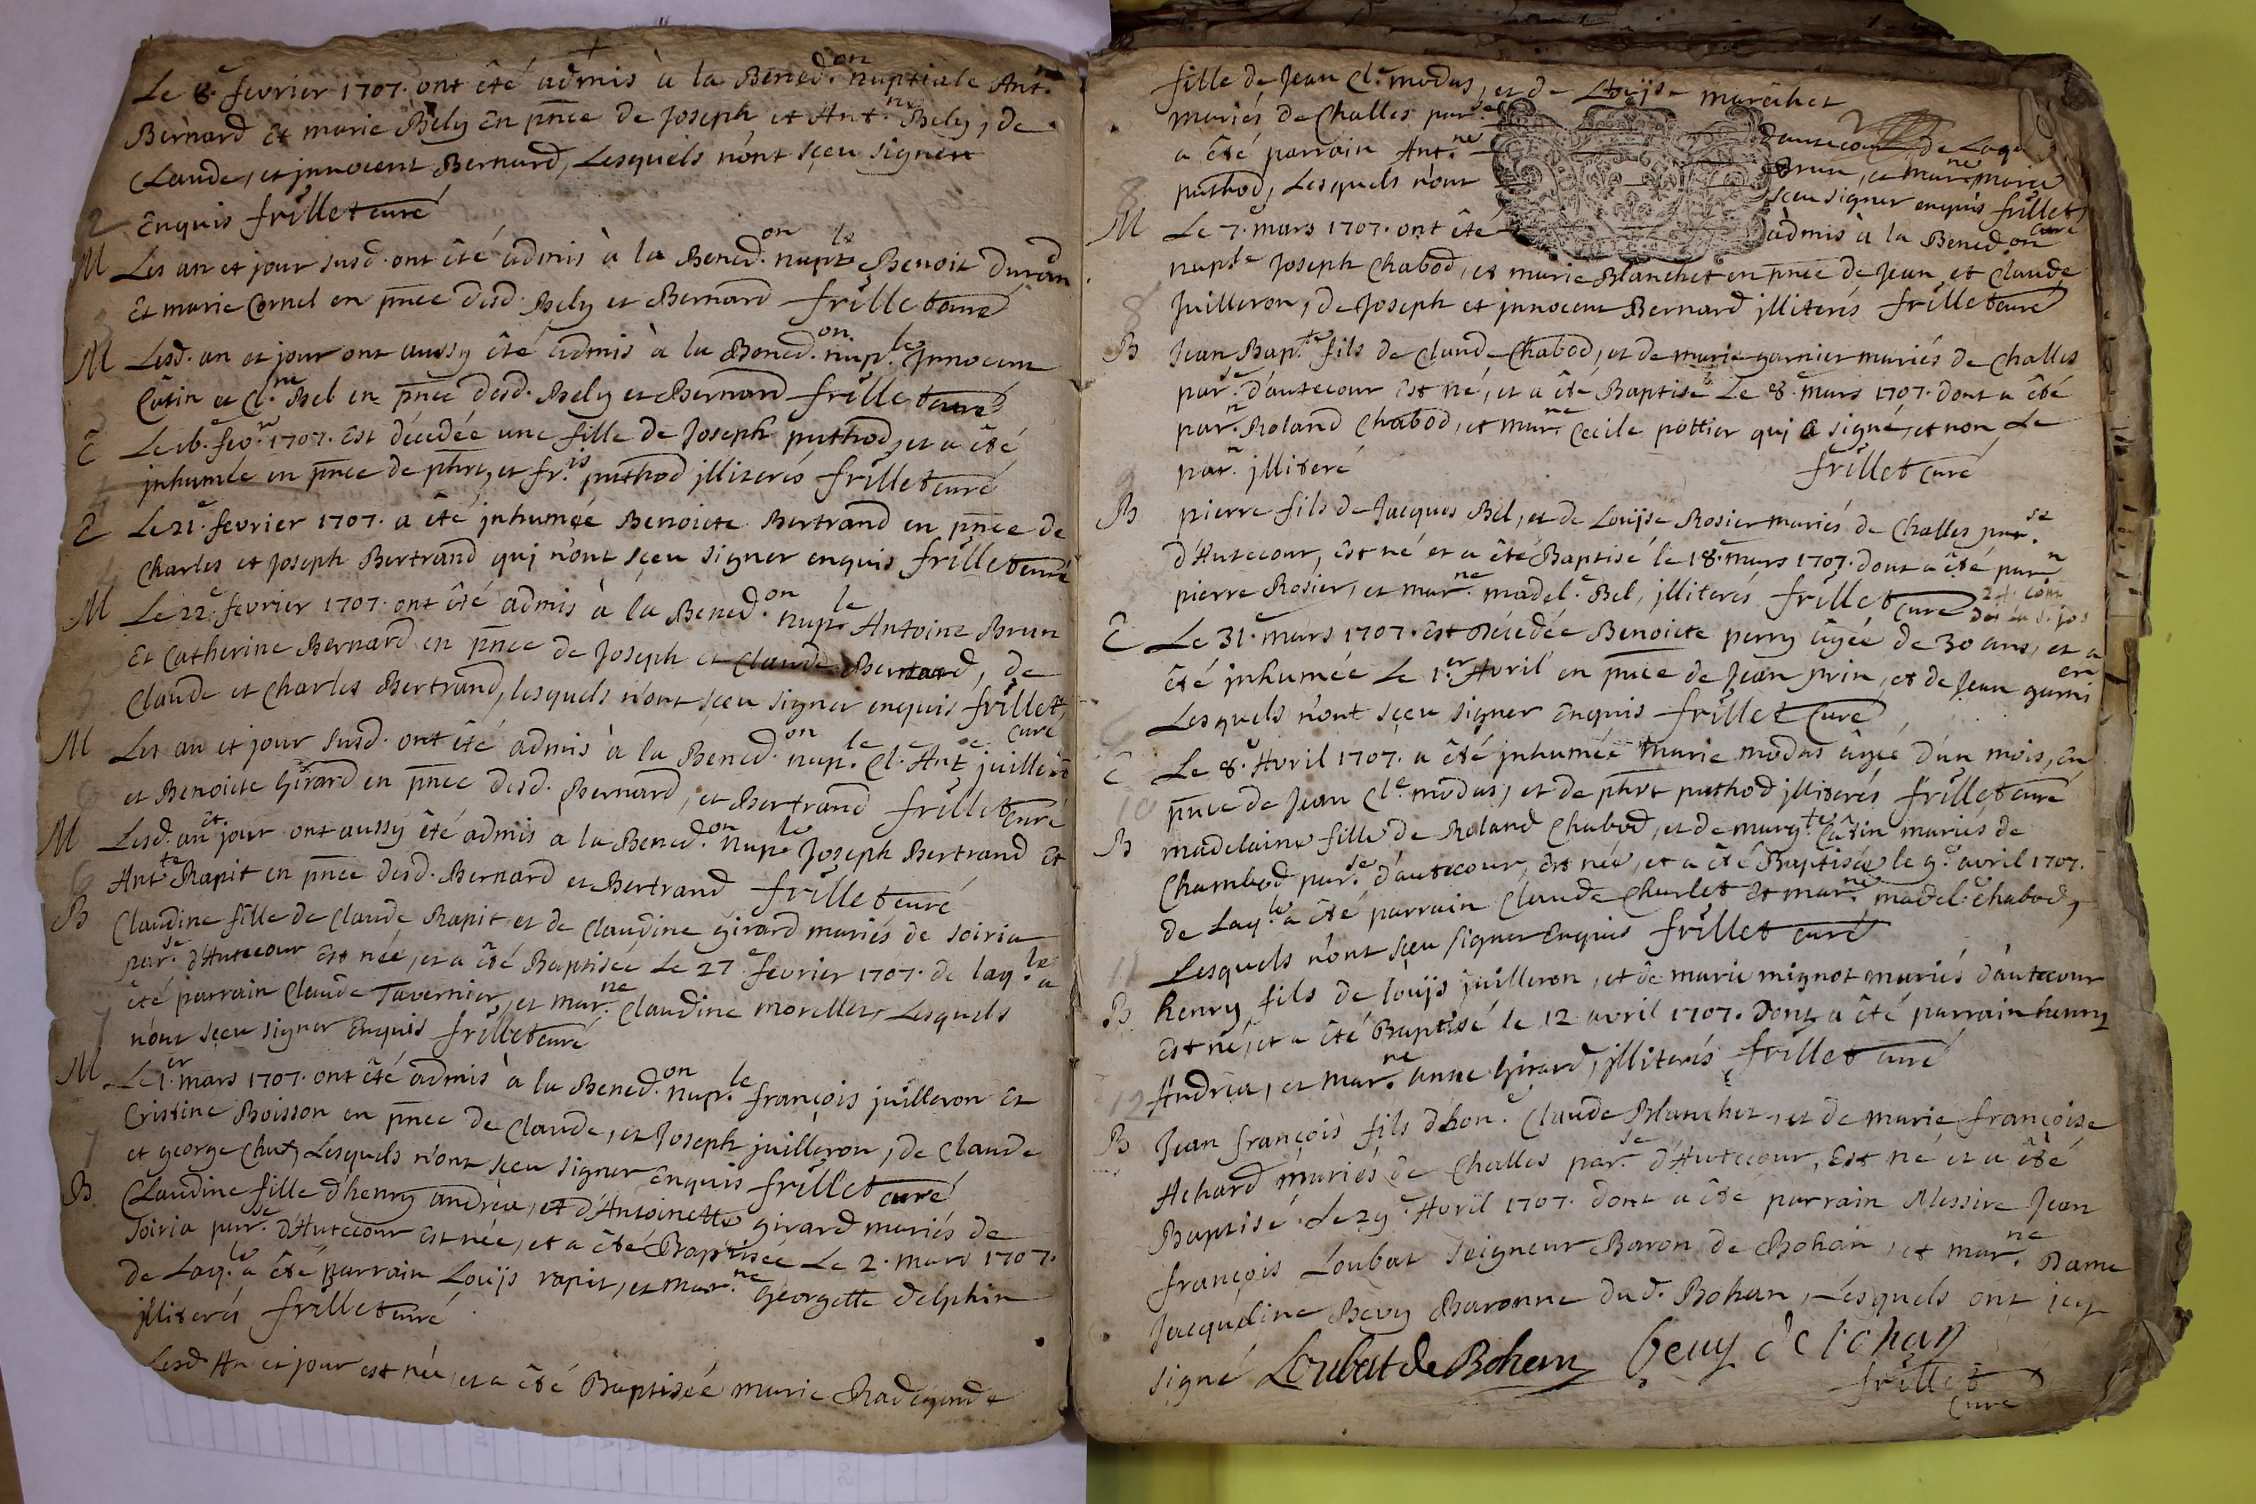 Le 8.e fevrier 1707. ont été admis à la Bened.on nuptiale Ant.ne
Bernard Et marie Bely En pñce de Joseph et Ant.ne Bely, de
Claude, et jnnocent Bernard, Lesquels n'ont sçeu signer
Enquis frillet curé
M Les an et jour susd. ont été admis à la Bened.on nupt.le Benoit duran
Et marie Cornel en pñce desd. Bely et Bernard frillet curé
M Lesd. an et jour ont aussy été admis à la Bened.on nup.le Jnnocent
Câtin et Cl.ne Bel en pñce desd. Bely et Bernard frillet curé
E Le 16.e fev.r 1707. Est décedée une fille de Joseph puthod, et a été
jnhumée en pñce de phrt, et fr.is puthod jlliterés frillet curé
E Le 21.e fevrier 1707. a été jnhumée Benoicte Bertrand en pñce de
Charles et Joseph Bertrand quj n'ont sçeu signer enquis frillet curé
M Le 22.e fevrier 1707. ont été admis à la Bened.on nup.le Antoine Brun
Et Catherine Bernard en pñce de Joseph et Claude Bernard, de
Claude et Charles Bertrand, lesquels n'ont sçeu signer enquis frillet
curé
M Les an et jour susd. ont été admis à la Bened.on nup.le Cl.e Ant.e juilleron
et Benoicte Girard en pñce desd. Bernard, et Bertrand frillet curé
M Lesd. an et jour ont aussy été admis à la Bened.on nup.le Joseph Bertrand Et
Ant.te Rapit en pñce desd. Bernard et Bertrand frillet curé
B Claudine fille de Claude Rapit et de Claudine Girard mariés de Soiria
par.se d'Autecour Est née, et a été Baptisée Le 27.e fevrier 1707. de laq.le a
été parrain Claude Tavernier, et mar.ne Claudine morellet, Lesquels
n'ont sçeu signer Enquis frillet curé
M Le 1.er mars 1707. ont été admis à la Bened.on nup.le françois juilleron Et
Cristine Boisson en pñce de Claude, et Joseph juilleron, de Claude
et george Chut, Lesquels n'ont sçeu signer Enquis frillet curé
B Claudine fille d'henry andréa, et d'Antoinette girard mariés de
Soiria par.se d'Autecour Est née, et a été Baptisée Le 2. mars 1707.
de Laq.le a été parrain Louijs rapit, et mar.ne Georgette delphin
jlliterés frillet curé
Lesd. An et jour est née, et a été Baptisée marie Radegonde
fille de Jean Cl.e modas, et de Louijse maréchet
mariés de Challes par.se d'autecour, de Laq.
a été parrain Ant.ne Brun, et mar.ne marie
puthod, Lesquels n'ont sçeu signer enquis frillet
curé
M Le 7.e mars 1707. ont été admis à la Bened.on
nup.le Joseph Chabod, et marie Blanchet en pñce de Jean et Claude
Juilleron, de Joseph et jnnocent Bernard jlliterés frillet curé
B Jean Bap.te fils de Claude Chabod, et de marie garnier mariés de Challes
par.se d'autecour Est né, et a été Baptisé Le 8.e mars 1707. dont a été
par.n Roland Chabod, et mar.ne Cecile pottier quj a signé, et non Le
par.n jlliteré frillet curé
B pierre fils de Jacques Bel, et de Louijse Rosier mariés de Challes par.se
d'Autecour, Est né et a été Baptisé le 18.e mars 1707. dont a été par.n
pierre Rosier, et mar.ne madel.e Bel, jlliterés frillet curé
E Le 31.e mars 1707. Est décedée Benoicte perry âgée de 30 ans, et a
été jnhumée Le 1.er Avril en pñce de Jean prin, et de Jean garni
Lesquels n'ont sçeu signer Enquis frillet Curé
E Le 8.e Avril 1707. a été jnhumée marie modas âgée d'un mois, En
pñce de Jean Cl.e modas, et de phrt puthod jlliterés frillet curé
B madelaine fille de Roland Chabod, et de marg.te Câtin mariés de
Chambod par.se d'autecour, Est née, et a été Baptisée le 9.e avril 1707.
de Laq.le a été parrain Claude Charlet Et mar.ne madel.e Chabod,
Lesquels n'ont sçeu signer Enquis frillet curé
B henry fils de loüijs juilleron, et de marie mignot mariés d'autecour
Est né, et a été Baptisé le 12 avril 1707. Dont a été parrain henry
Andréa, et mar.ne anne Girard, jlliterés frillet curé
B Jean françois fils d'hon.e Claude Blanchet, et de marie françoise
Achard mariés de Challes par.se d'Autecour, Est né et a été
Baptisé Le 29.e Avril 1707. dont a été parrain Messire Jean
françois Loubat Seigneur Baron de Bohan, et mar.ne Dame
Jacqueline Bevy Baronne dud. Bohan, Lesquels ont jcy
signé Loubat de Bohan beuy de bohan
frillet
Curé